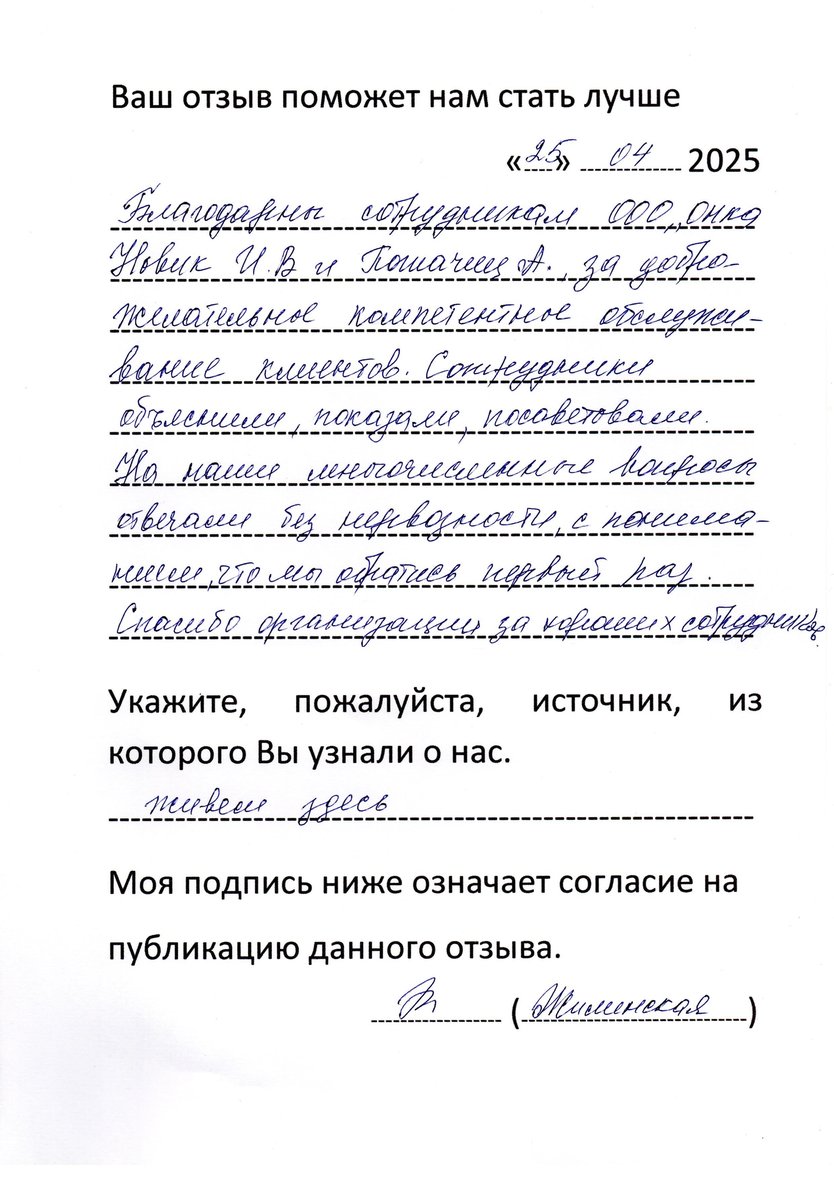 Ваш отзыв поможет нам стать лучше
«25» 04 2025
Благодарны сотрудникам ООО „Онка
Новик И.В и А., за добро-
желательное компетентное обслужи-
вание клиентов. Сотрудники
объяснили, показали, посоветовали.
На наши многочисленные вопросы
отвечали без нервозности, с понима-
нием, что мы обратись первый раз.
Спасибо организации за хороших сотрудников.
Укажите, пожалуйста, источник, из
которого Вы узнали о нас.
живем здесь
Моя подпись ниже означает согласие на
публикацию данного отзыва.
(Жилинская)